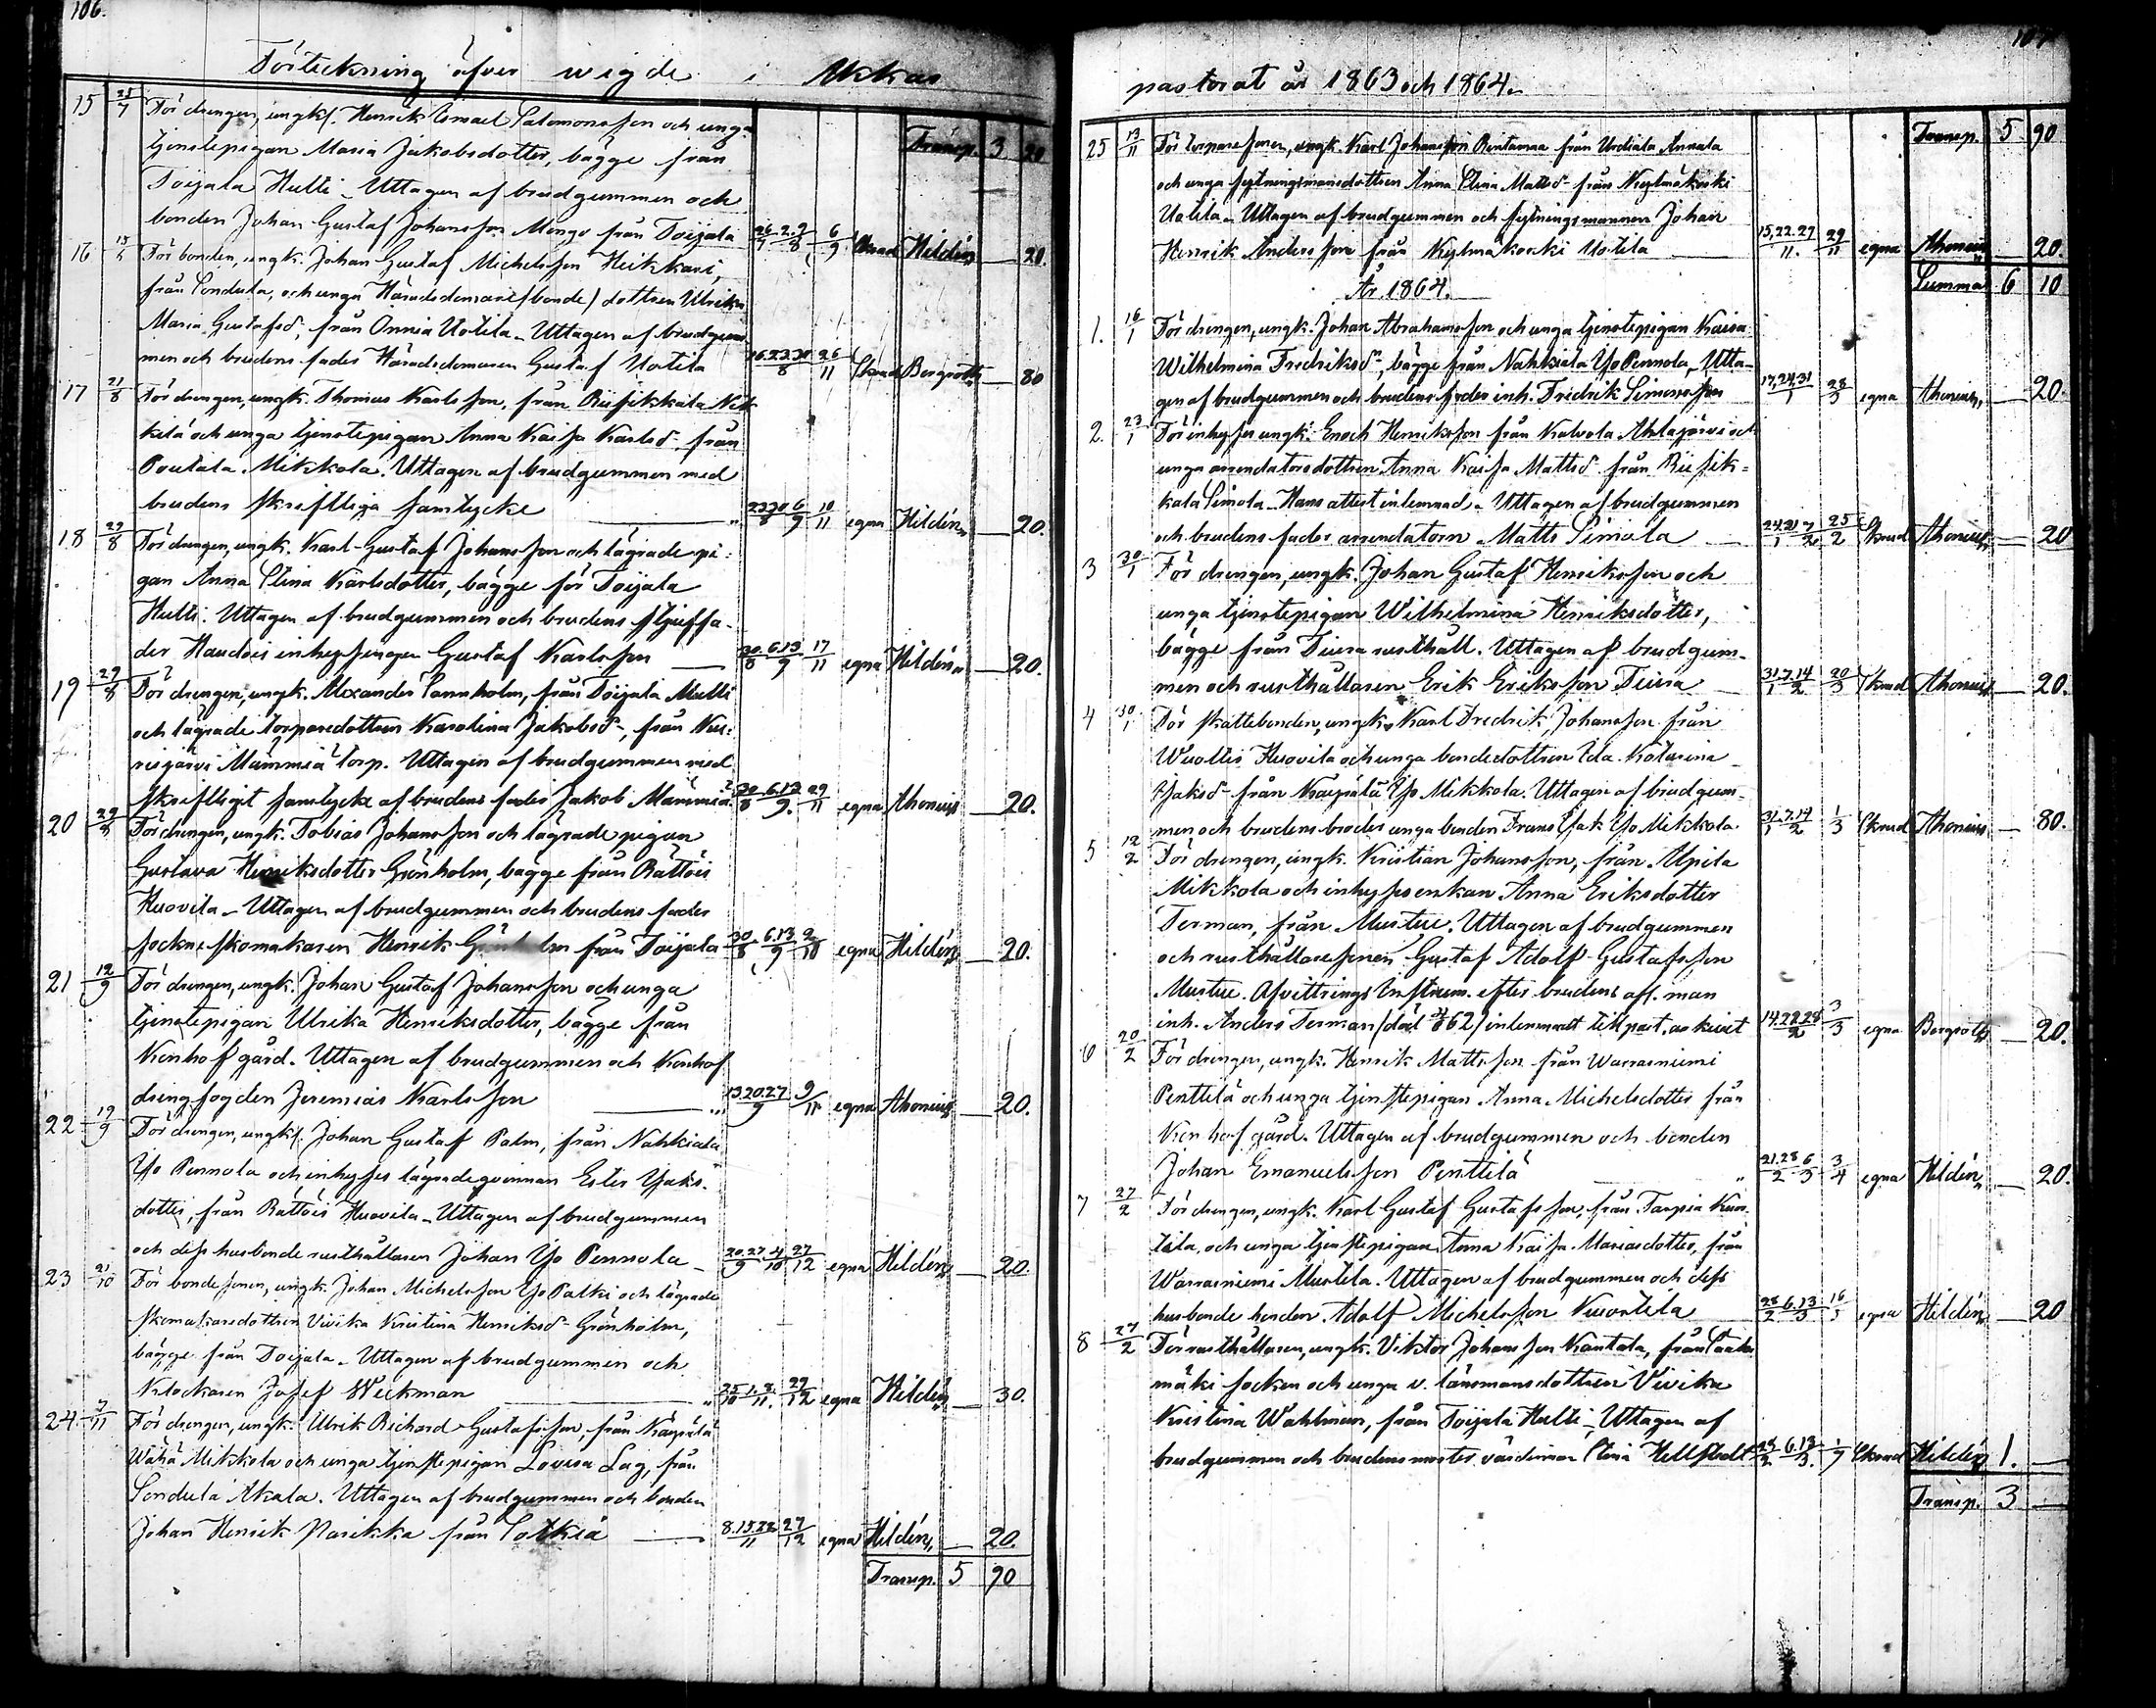 106.
Förteckning öfver wigde i Akkas
15 25/7 För drengen, ungk. Henrik Ismael Salomonsson och unga
tjenstepigan Maria Jakobsdotter, bägge från Transp. 3 20
Toijala Hulli. Uttagen af brudgummen och
bonden Johan Gustaf Johansson Mongo från Toijala 26/7 2.9/8 6/9 Hildén 20.
16 15/8 För bonden, ungk. Johan Gustaf Michelsson Heikkari,
från Sondula, och unga Häradsdomare(bonde)dottren Ulrika
Maria Gustafsd., från Onnia Uotila. Uttagen af brudgum-
men och brudens fader Häradsdomaren Gustaf Uotila 16.23.30/8 26/11 Bergroth 80
17 21/8 För drengen, ungk. Thomas Karlsson, från Riisikkala Nik-
kilä och unga tjenstepigan Anna Kaisa Karlsd. från
Poutala Mikkola. Uttagen af brudgummen med
brudens skriftliga samtycke 23.30/8 6/9 10/11 egna Hildén 20.
18 29/8 För drengen, ungk. Karl Gustaf Johansson och lägrade pi-
gan Anna Stina Karlsdotter, bägge för Toijala
Hulli. Uttagen af brudgummen och brudens styffa-
der Haudois inhysingen Gustaf Karlsson 30/8 6.13/9 17/11 egna Hildén 20.
19 29/8 För drengen, ungk. Alexander Sannholm, från Toijala Mulli
och lägrade torparedottren Karolina Jakobsd., från Kur-
risjärvi Mämmiä torp. Uttagen af brudgummen med
skriftligit samtycke af brudens fader Jakob Mämmiä 30/8 6.13/9. 29/11 egna Ahonius 20.
20 29/8 För drengen, ungk. Tobias Johansson och lägrade pigan
Gustava Henriksdotter Grönholm, bägge från Rättöis
Huovila. Uttagen af brudgummen och brudens fader
sockneskomakaren Henrik från Toijala 30/8 6.13/9 2/10 egna Hildén 20.
21 12/9 För drengen, ungk. Johan Gustaf Johansson och unga
tjenstepigan Ulrika Henriksdotter, bägge från
Konhof gård. Uttagen af brudgummen och Konhof
drengfogden Jeremias Karlsson 13.20.27/9 9/11 egna Ahonius 20.
22 19/9 För drengen, ungk. Johan Gustaf Palm, från Nahkiala
Yso Pennola och inhyses lägradeqvinnan Ester Isaks-
dotter, från Rättöis Huovila. Uttagen af brudgummen
och dess husbonde rusthållaren Johan Yso Pennola 20.27/9 4/10 27/12 egna Hildén 20.
23 21/10 För bondesonen, ungk. Johan Michelsson Yso Palki och lägrade
skomakaredottren Vivika Kristina Henriksd. Grönholm,
bägge från Toijala. Uttagen af brudgummen och
Klockaren Josef Weckman 25/10 1.8./11. 29/12 egna Hildén 30.
24. 7/11 För drengen, ungk. Ulrik Richard Gustafsson, från Kägrälä
Wähä Mikkola och unga tjenstepigan Lovisa Lag, från
Sondula Akala. Uttagen af brudgummen och bonden
Johan Henrik Parikka från Sotkia 8.15.22/11 27/12 egna Hildén 20.
Transp. 5 90
107
pastorat år 1863 och 1864.
25 13/11 För torparesonen, ungk. Karl Johansson Rintamaa från Urdiala Annula Transp. 5 90
och unga sytningsmansdottren Anna Stina Mattsd. från Kylmäkoski
Uotila. Uttagen af brudgummen och sytningsmannen Johan
Henrik Andersson från Kylmäkoski Uotila 15.22.27/11. 29/11 egna Ahonius 20.
År 1864. Summa 6 10
1. 16/1 För drengen, ungk. Johan Abrahamsson och unga tjenstepigan Kaisa
Wilhelmina Fredriksd., bägge från Nahkiala Yso Pennola. Utta-
gen af brudgummen och brudens fader inh. Fredrik Simonsson 17.24.31/1 28/3 egna Ahonius 20.
2. 23/1 För inhyses ungk. Enoch Henriksson från Kalvola Ahlajärvi och
unga arrendatorsdottren Anna Kaisa Mattsd. från Riisik-
kala Simola. Hans attest inlemnad. Uttagen af brudgummen
och brudens fader arrendatorn Matts Simola 24.31/1 7/2 25/2 Skrud Ahonius 20
3 30/1 För drengen, ungk. Johan Gustaf Henriksson och
unga tjenstepigan Wilhelmina Henriksdotter,
bägge från Tiura rusthåll. Uttagen af brudgum-
men och rusthållaren Erik Eriksson Tiura 31/1 7.14/2 20/3 Skrud Ahonius 20.
4 30/1 För skattebonden, ungk. Karl Fredrik Johansson från
Wuoltis Huovila och unga bondedottren Ida Katarina
Isaksd. från Kägrälä Yso Mikkola. Uttagen af brudgum-
men och brudens broder unga bonden Frans Isak Yso Mikkola 31/1 7.14/2 1/3 Skrud Ahonius 80.
5 12/2 För drengen, ungk. Kristian Johansson, från Alpila
Mikkola och inhysesenkan Anna Eriksdotter
Terman, från Mustue. Uttagen af brudgummen
och rusthållaresonen Gustaf Adolf Gustafsson
Mustue. Afvittrings Instrum. efter brudens afl. man
inh. Anders Terman inlemnadt till past. arkivet 14.22.28/2 3/3 egna Bergroth 20.
6 20/2 För drengen, ungk. Henrik Mattsson från Warrasniemi
Penttilä och unga tjenstepigan Anna Michelsdotter från
Konhof gård. Uttagen af brudgummen och bonden
Johan Emanuelsson Penttilä 21.28/2 6/3 3/4 egna Hildén 20.
7 27/2 För drengen, ungk. Karl Gustaf Gustafsson, från Tarpia Kuur-
tila, och unga tjenstepigan Anna Kaisa Mariasdotter, från
Warrasniemi Mustela. Uttagen af brudgummen och dess
husbonde bonden Adolf Michelsson 28/2 6.13/3 16/5 egna Hildén 20
8 27/2 För rusthållaren, ungk. Viktor Johansson Kantala, från Saaks-
mäki socken och unga v. länsmansdottren Vivika
Kristina Wahlman, från Toijala Hulli. Uttagen af
brudgummen och brudens moster värdinnan Stina Hellstedt 28/2 6.13/3. 1/9 Skrud Hildén 1.
Transp. 3